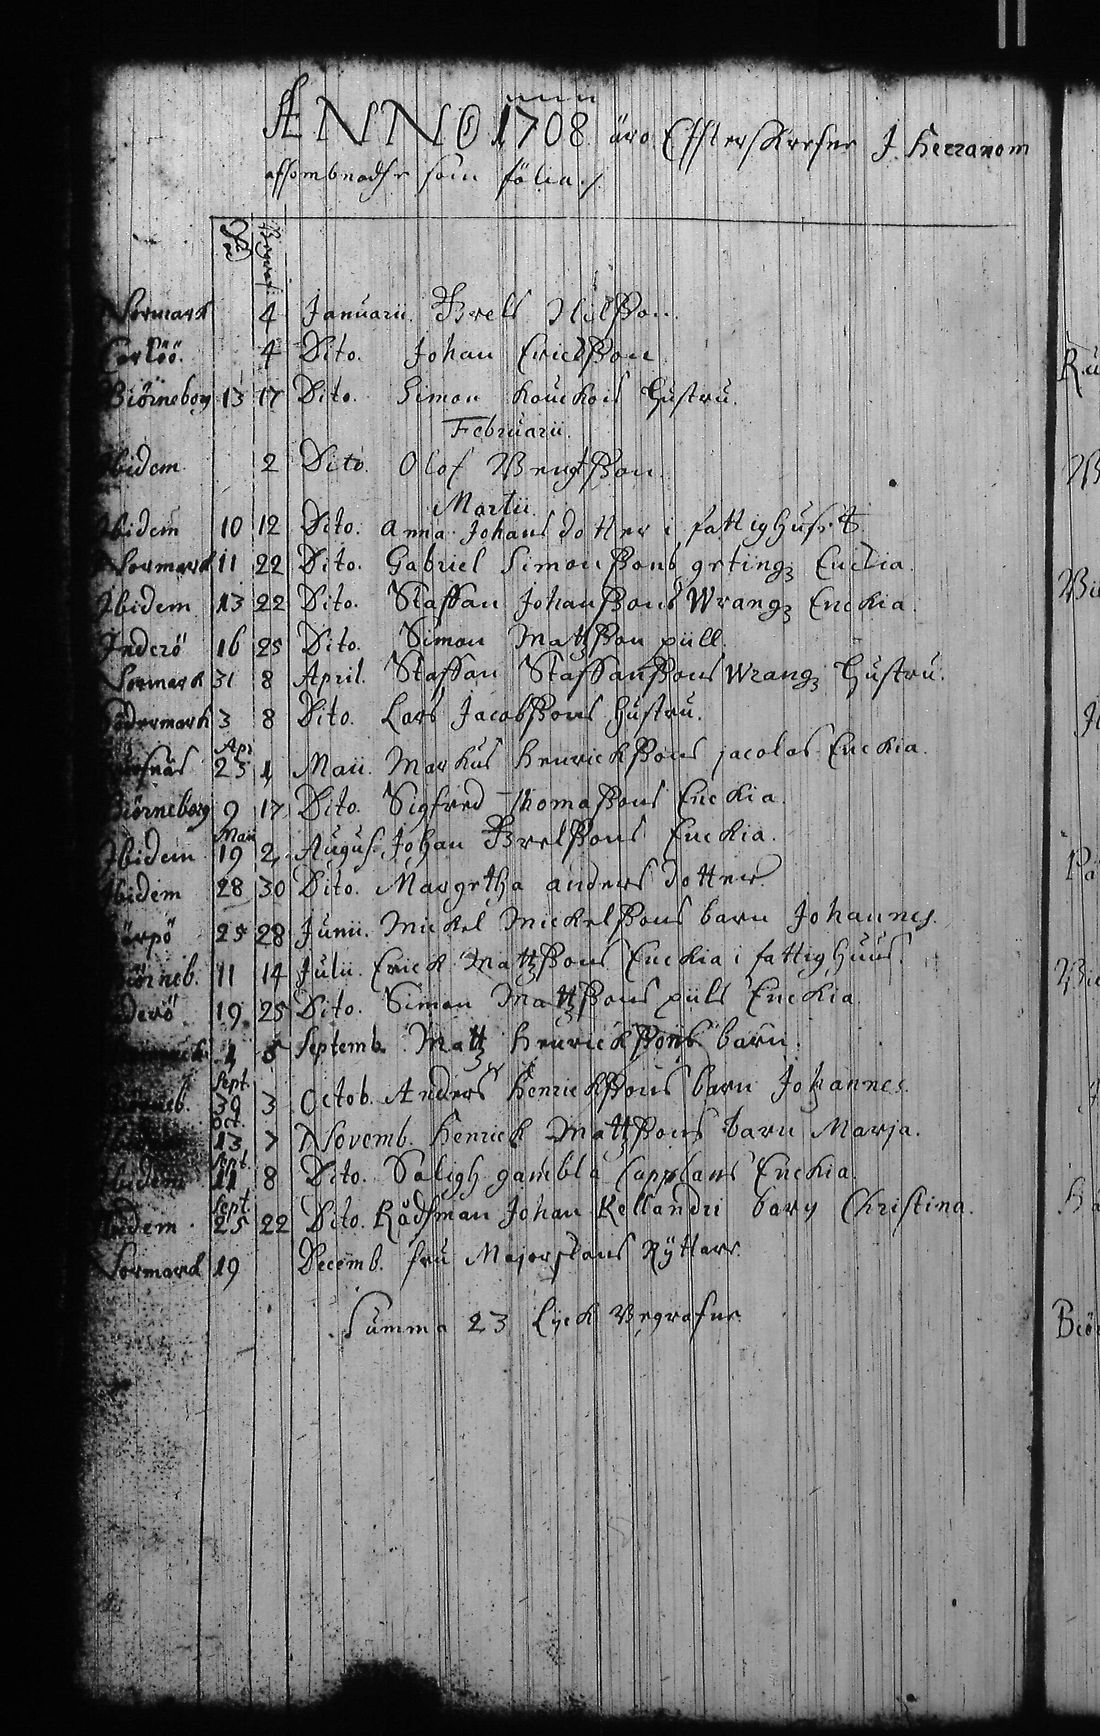 ANNO 1708 äro Effterskrefne J Herranom
afsombnadhe som fölia./.
Död Begraf.
Normark 4 Januarii. Brels Nilsson.
Carlöö. 4 Dito. Johan Ericksson
Biörneborg 13 17 Dito. Simon Kouckois Hustru.
Februarii.
Ibidem 2 Dito. Olof Bengtsson.
Martii.
Ibidem 10 12 Dito. Anna Johans dotter i fattighuset.
Normark 11 22 Dito. Gabriel Simonssons Enckia.
Ibidem 13 22 Dito. Staffan Johanssons Wrangz Enckia.
Inderö 16 25 Dito. Simon Matzson pull.
Normark 31 8 April. Staffan Staffanssons Wrangz Hustru.
Södermark 3 8 Dito. Lars Jacobssons Hustru.
Apr.
25 1 Maii. Markus Henrickssons jacolas Enckia.
Biörneborg 9 17 Dito. Sigfred Thomassons Enckia.
Maii
Ibidem 19 2 Augus. Johan Brelssons Enckia.
Ibidem 28 30 Dito. Margetha anders dotter.
25 28 Junii. Mickel Mickelssons barn Johannes.
Biörneb. 11 14 Julii. Erick Mattzsons Enckia i fattighuus.
Inderö 19 25 Dito. Simon Mattzsons puls Enckia.
1 5 Septemb. Matz Henrickssons barn.
Sept.
Biörneb. 30 3 Octob. Anders Henrickssons barn Johannes.
Oct.
13 7 Novemb. Henrick Mattzsons barn Marja.
Sept.
Ibidem 11 8 Dito. Saligh gambla Capplans Enckia.
Sept.
Ibidem 25 22 Dito. Rådhman Johan Kellandri barn Christina.
Normark 19 Decemb. fru Majorskans Ryttare.
Summa 23 Lijck Begrafne.